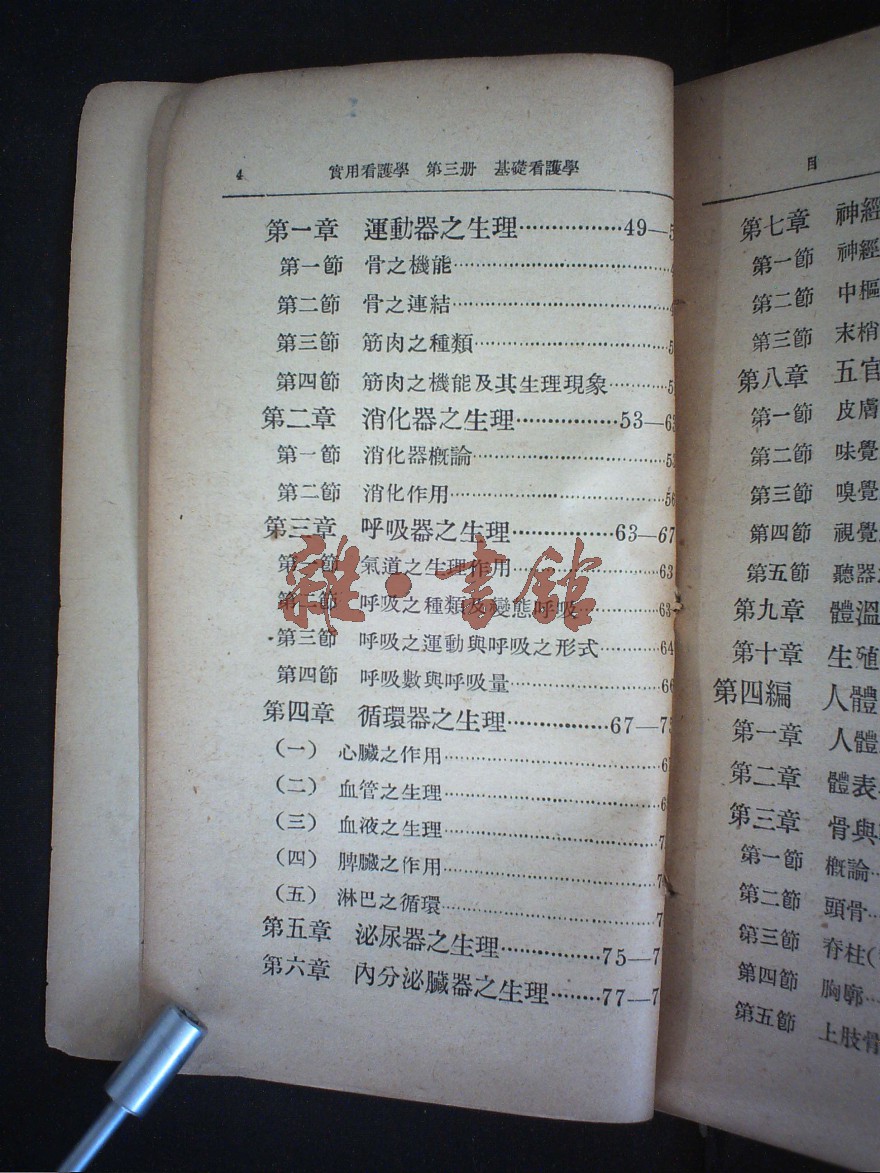 4 實用看護學 第三册 基礎看護學
第一章 運動器之生理………………49—5
第一節 骨之機能
第二節 骨之連結
第三節 筋肉之種類……………………5
第四節 筋肉之機能及其生理現象…………5
第二章 消化器之生理………………53—63
第一節 消化器概論……………………53
第二節 消化作用……………………56
第三章 呼吸器之生理………………63—67
第一節 氣道之生理作用………………63
第二節 呼吸之種類及變態呼吸…………63
第三節 呼吸之運動與呼吸之形式…………64
第四節 呼吸數與呼吸量………………66
第四章 循環器之生理………………67—75
(一) 心臟之作用……………………6
(二) 血管之生理……………………6
(三) 血液之生理……………………7
(四) 脾臟之作用……………………7
(五) 淋巴之循環……………………7
第五章 泌尿器之生理………………75—7
第六章 內分泌臟器之生理………77—7
雜·書館
目
第七章 神經
第一節 神經
第二節 中樞
第三節 末梢
第八章 五官
第一節 皮膚
第二節 味覺
第三節 嗅覺
第四節 視覺
第五節 聽器
第九章 體溫
第十章 生殖
第四編 人體
第一章 人體
第二章 體表
第三章 骨與
第一節 概論
第二節 頭骨
第三節 脊柱(
第四節 胸廓
第五節 上肢骨